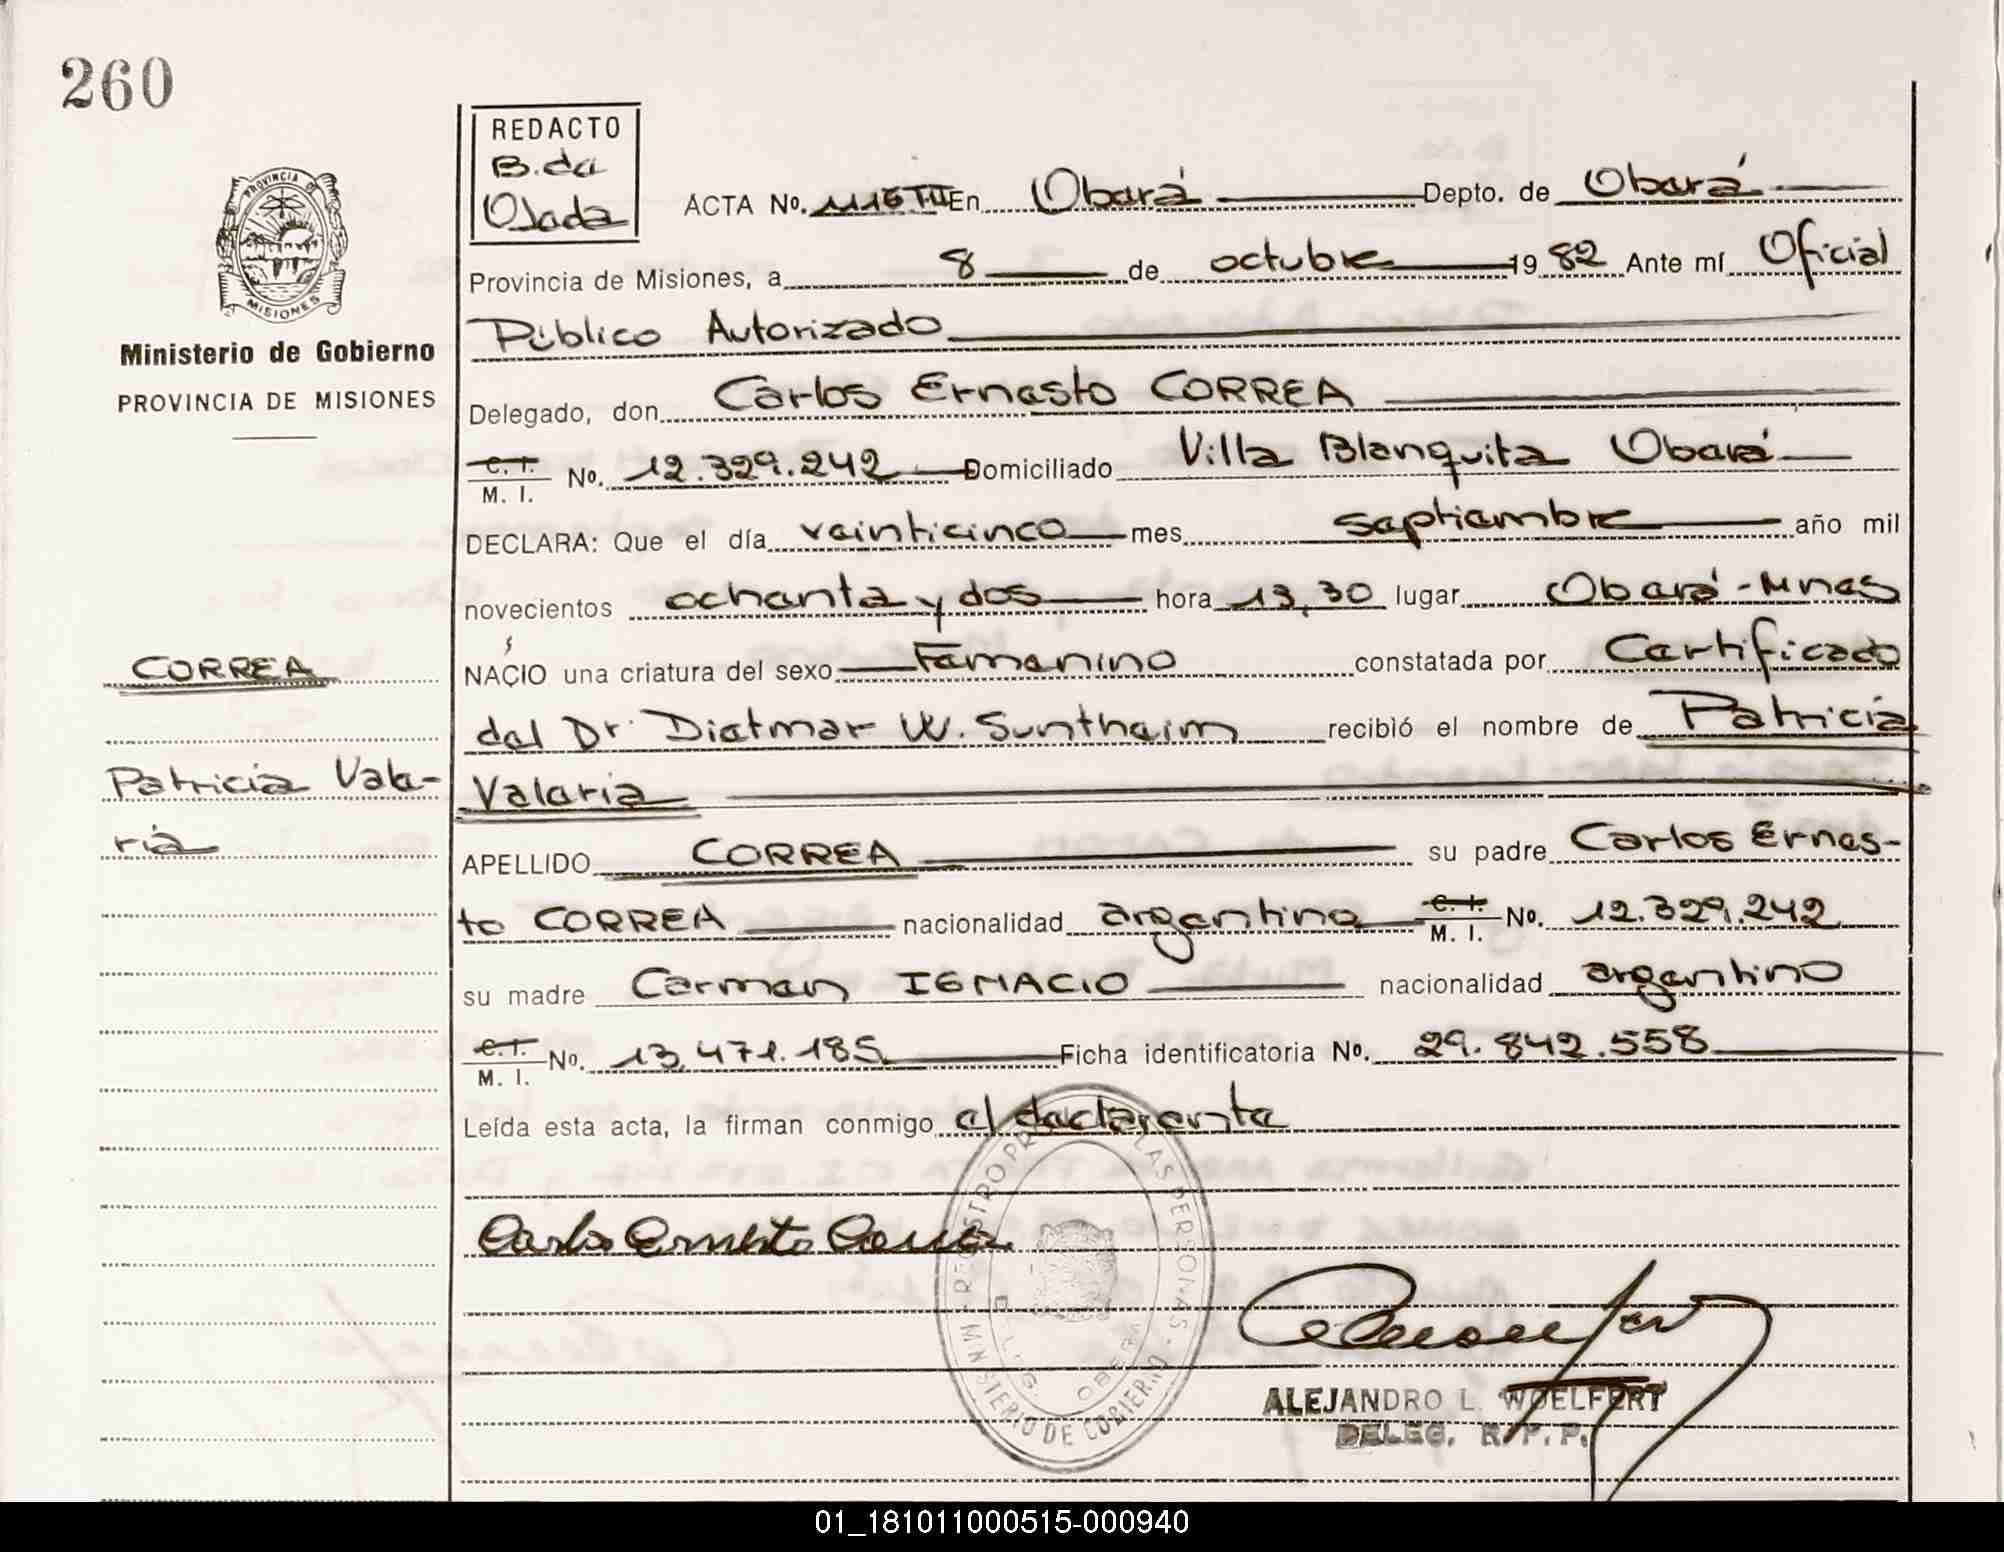 260
REDACTO
B. de
Ojeda
ACTA No. 1116 TII En Oberá Depto. de Oberá
Provincia de Misiones, a 8 de octubre 19 82 Ante mí Oficial
Público Autorizado
Delegado, don Carlos Ernesto CORREA
C. I.
M. I. No. 12.329.242 Domiciliado Villa Blanquita Oberá
DECLARA: Que el día veinticinco mes septiembre año mil
novecientos ochenta y dos hora 13,30 lugar Oberá-Mnes
NACIO una criatura del sexo Femenino constatada por Certificado
del Dr. Dietmar W. Suntheim recibió el nombre de Patricia
Valeria
APELLIDO CORREA su padre Carlos Ernes-
to CORREA nacionalidad argentino C. I.
M. I. No. 12.329.242
su madre Carmen IGNACIO nacionalidad argentino
C. I.
M. I. No. 13.471.185 Ficha identificatoria No. 29.842.558
Leída esta acta, la firman conmigo el declarante
Carlos Ernesto Correa
ALEJANDRO L. WOELFERT
DELEG. R. P. P.
PROVINCIA DE
MISIONES
Ministerio de Gobierno
PROVINCIA DE MISIONES
CORREA
Patricia Vale-
ria
LAS PERSONAS
OBERA
MINISTERIO DE GOBIERNO
01_181011000515-000940